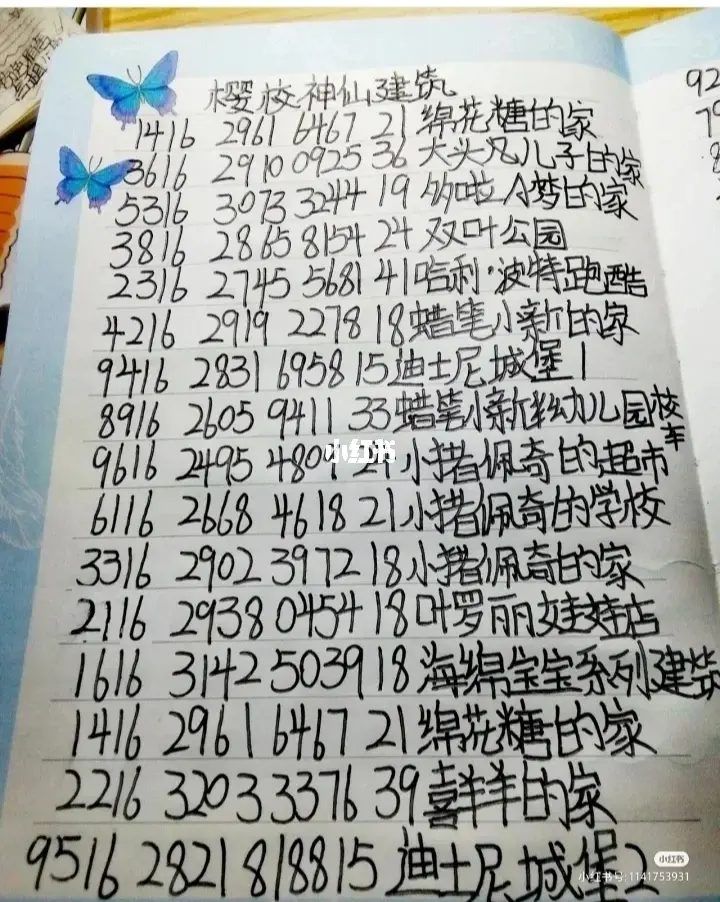 樱校神仙建筑
1416 2961 6467 21 绵花糖的家
3616 2910 0925 36 大头儿子的家
5316 3073 3244 19 哆啦A梦的家
3816 2865 8154 24 双叶公园
2316 2745 5681 41 哈利·波特跑酷
4216 2919 2278 18 蜡笔小新的家
9416 2831 6958 15 迪士尼城堡1
8916 2605 9411 33 蜡笔小新幼儿园校车
9616 2495 21 小猪佩奇的超市
6116 2668 4618 21 小猪佩奇的学校
3316 2902 3972 18 小猪佩奇的家
2116 2938 0454 18 叶罗丽娃娃店
1616 3142 5039 18 海绵宝宝系列建筑
1416 2961 6467 21 绵花糖的家
2216 3203 3376 39 喜羊羊的家
9516 2821 8188 15 迪士尼城堡2
小红书
小红书
小红书号:1141753931